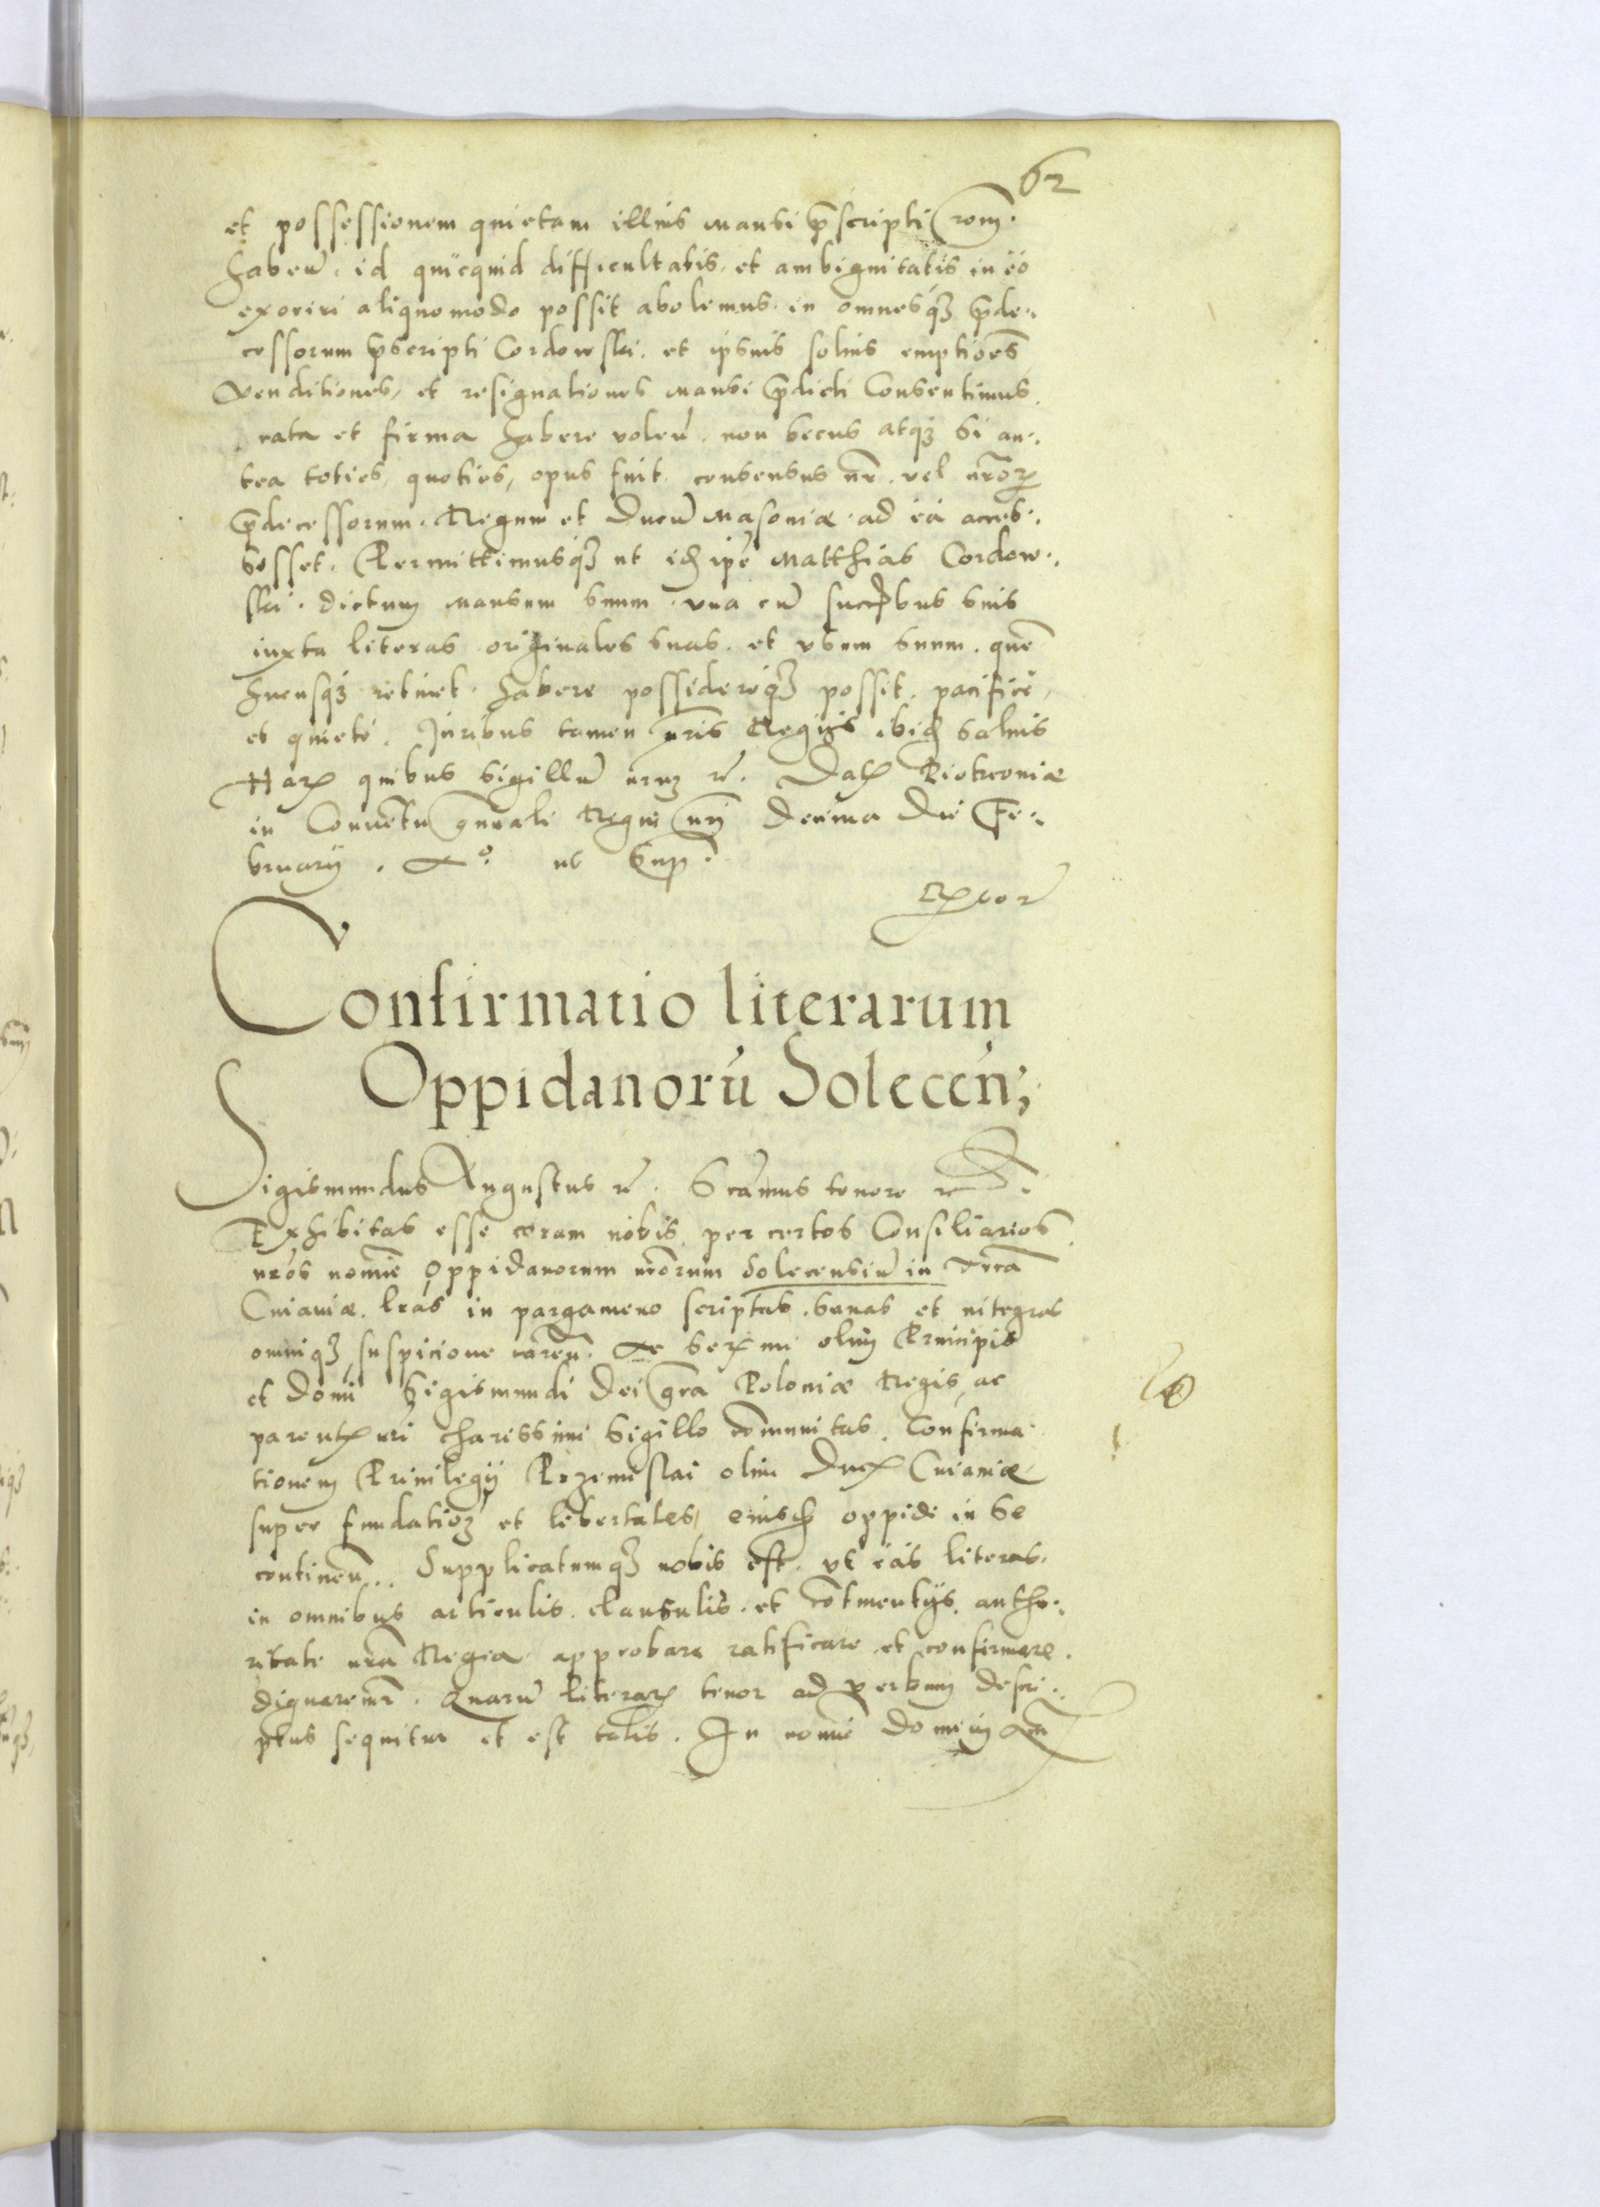 62
et possessionem quietam illius mansi p̄scripti rom̄.
haben̄. id quicquid difficultatis, et ambiguitatis in eo
exoriri aliquomodo possit abolemus. in omnesq̄ȝ p̄de:
cessorum p̄scripti Cordowski. et ipsius solius emptiões
Venditiones, et resignationes mansi p̄dicti Consentimus.
rata et firma habere volen̄. non secus atqȝ si an:
tea toties, quoties, opus fuit consensus nr̄. vel nr̄orꝝ
p̄decessorum. Regum et Ducū Masoviæ. ad ea acces:
sisset. Permittimusqȝ ut id̄ ipē Matthias Cordow:
ski. dictum mansum suum. una cū succ̄bus suis
iuxta literas originales suas. et usum suum. quē
hucusqȝ retinet. habere possidereqȝ possit. pacificè,
et quietè. Juribus tamen nr̄is Regijs. ibid̄ salvis
Harꝝ quibus sigillū nrm̄ r̄. Datꝭ Piotrcoviæ
in Conventu gn̄rali Regni nr̄j Decima Die Fe:
bruarij. Aº ut Sup̄.
Confirmatio literarum
Oppidanorū Solecen̄;
Sigismundus Augustus r̄. S cāmus tenore r̄
Exhibitas esse coram nobis, per certos Consiliarios
nr̄os nomīe Oppidanorum nr̄orum Solecensiū in terrā
Cuiaviæ. lr̄as in pargameno scriptas. sanas et integras
omniqȝ suspicione caren̄. ac Serꝭmi olim Principis
et Domī Sigismundi Dei gr̄a Poloniæ Regis, ac
parentꝭ nr̄i charissimi Sigillo cōmunitas. Confirma
tionem Privilegij Przemislai olim Ducꝭ Cuiaviæ
super fundatiōȝ et libertates, eiusd̄ oppidi in se
continen̄.. Supplicatumqȝ nobis est. ut eas literas.
in omnibus articulis. clausulis. et cōtinentijs. autho:
ritate nr̄a Regia approbare ratificare et confirmare.
dignaremr̄. Quarū literarꝝ tenor ad verbum descri:
ptus sequitur et est talis. In nomīe Domini Am̄